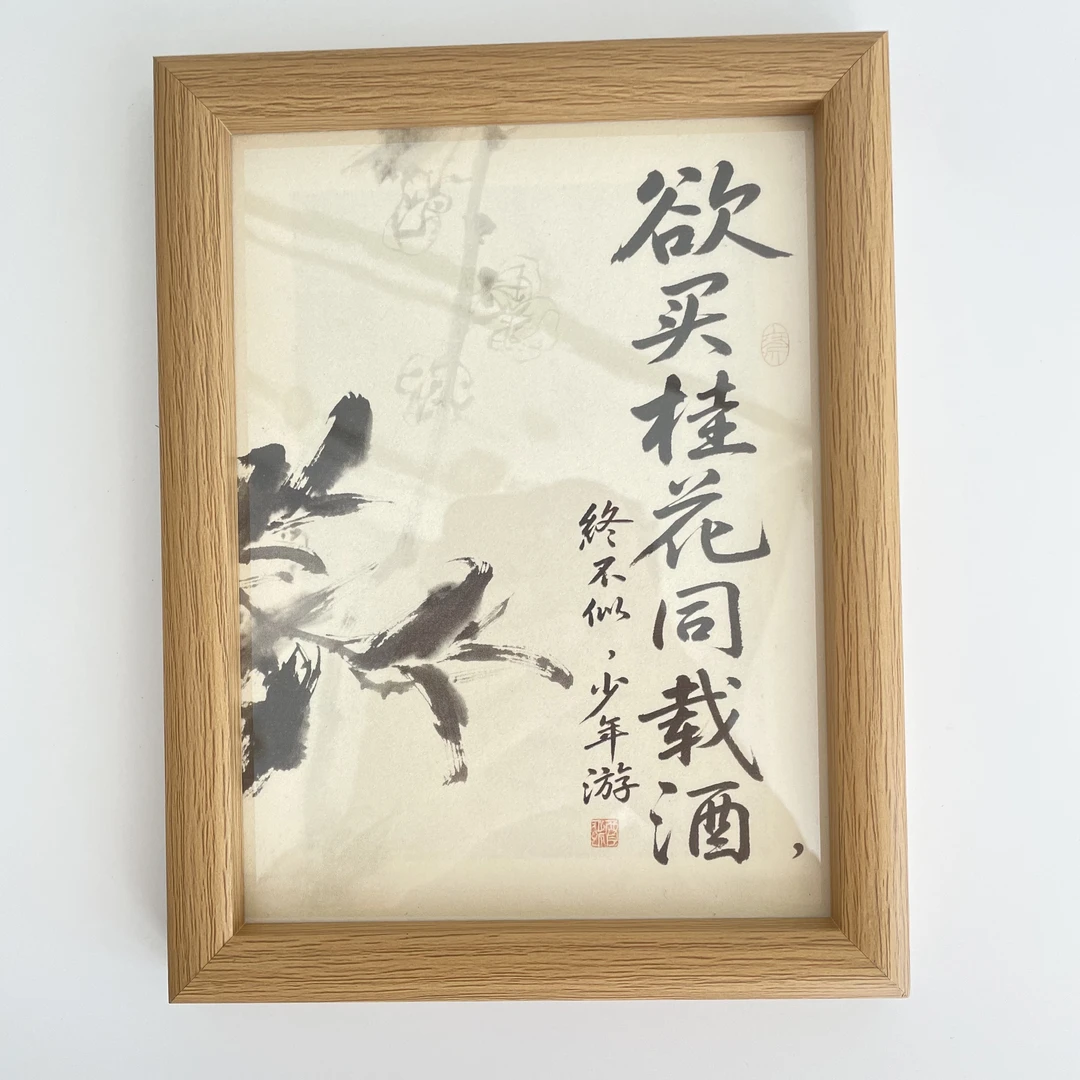 欲买桂花同载酒，
終不似，少年游